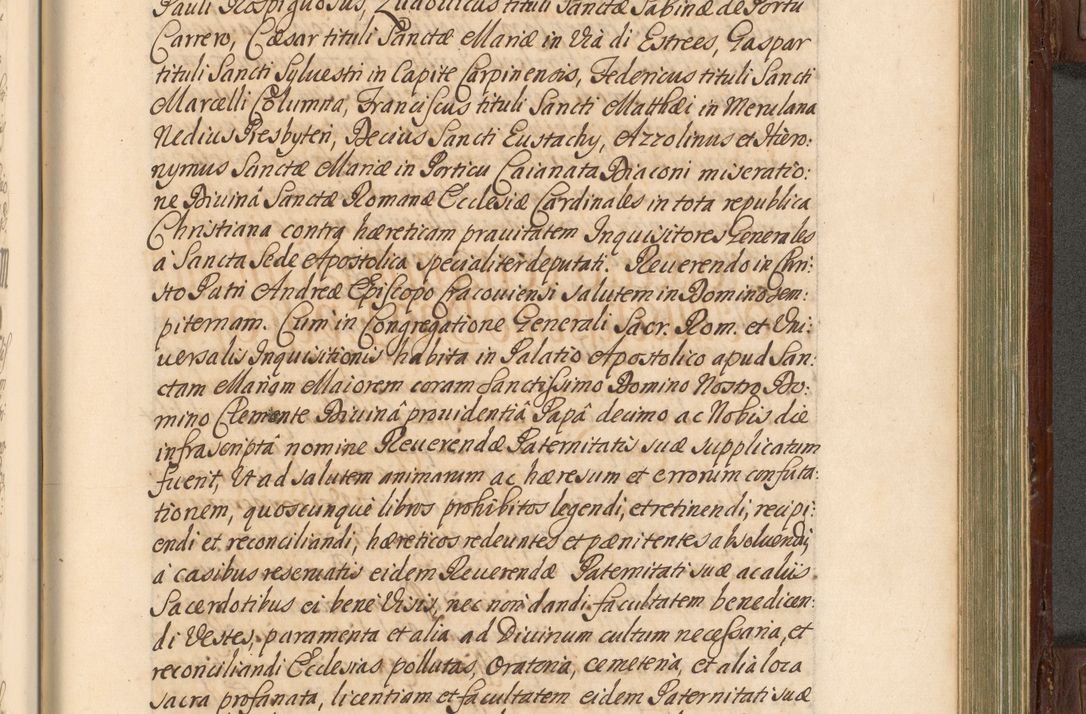 Pauli Rospigliosus, Ludovicus tituli Sanctæ Sabinæ de Portu
Carrero, Cæsar tituli Sanctæ Mariæ in Via di Estrees, Gaspar
tituli Sancti Syluestri in Capite Carpinensis, Federicus tituli Sancti
Marcelli Columna, Franciscus tituli Sancti Matthæi in Merulana
Nedius Presbyteri, Decius Sancti Eustachy, Azzolinus et Hiero:
nymus Sanctæ Mariæ in Porticu Caianata Diaconi miseratio:
ne Diuinâ Sanctæ Romanæ Ecclesiæ Cardinales in tota republica
Christiana contra hæreticam prauitatem Inquisitores Generales
a Sancta Sede Apostolica specialiter deputati. Reuerendo in Chri:
sto Patri Andreæ Episcopo Cracouiensi salutem in Domino sem:
piternam. Cum in Congregatione Generali Sacr. Rom. et Uni:
uersalis Inquisitionis habita in Palatio Apostolico apud San:
ctam Mariam Maiorem coram sanctissimo Domino Nostro Do:
mino Clemente Diuinâ prouidentiâ Papâ decimo ac Nobis die
infrascriptâ nomine Reuerendæ Paternitatis suæ supplicatum
fuerit, Ut ad salutem animarum ac hæresum et errorum confuta:
tionem, quoscunque libros prohibitos legendi, et retinendi, recipi:
endi et reconciliandi, hæreticos redeuntes et pænitentes absoluendi,
à casibus reseruatis eidem Reuerendæ Paternitati suæ ac aliis
Sacerdotibus ei bene Visis, nec non dandi facultatem benedicen:
di Vestes, paramenta et alia ad Diuinum cultum necessaria, et
reconciliandi Ecclesias pollutas, Oratoria, cemeteria, et alia loca
sacra profanata, licentiam et facultatem eidem Paternitati suæ